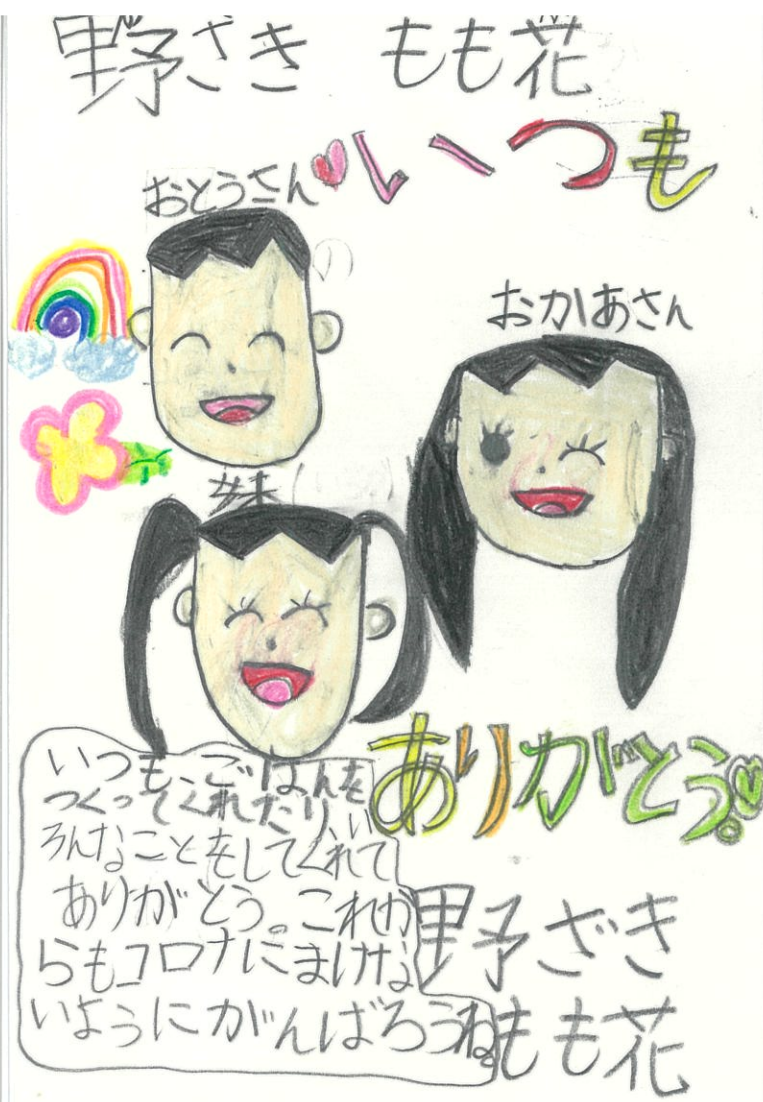 野ざき もも花
いつも
おとうさん
おかあさん
妹
ありがとう。
いつも、ごはんを
つくってくれたり、い
ろんなことをしてくれて
ありがとう。これか
らもコロナにまけな
いようにがんばろうね。
野ざき
もも花